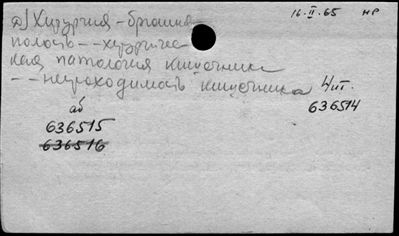 а) Хирургия - брюшна 16.II.65 НР
полость -- хирургичес
кая патология кишечника
-- непроходимость кишечника Чит.
аб 636514
636515
636516